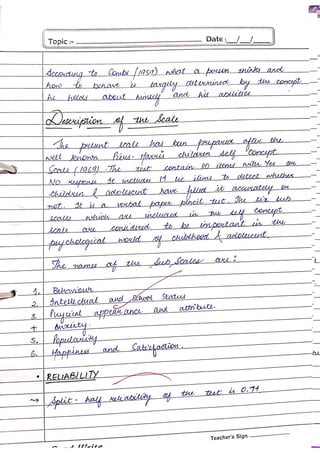 Topic :- Date : __/__/__
According to Combs (1959) what a person thinks and
how to behave is largely determined by the concept
he holds about himself and his abilities
Description of the Scale
The present scale has been prepared after the
well known Piers-Harris children self concept
Scale (1969). The test contain 80 items with Yes or
No response. It includes 14 lie items to detect whether
children & adolescent have filled it accurately or
not. It is a verbal paper pencil test. The six sub
scales which are included in the self concept
scale are considered to be important in the
psychological world of childhood & adolescent.
The names of the Sub Scales are :
1. Behaviour
2. Intellectual and School Status
3. Physical appearance and attribute
4. Anxiety.
5. Popularity
6. Happiness and Satisfaction.
• RELIABILITY
→ Split - half reliability of the test is 0.74
Teacher's Sign.